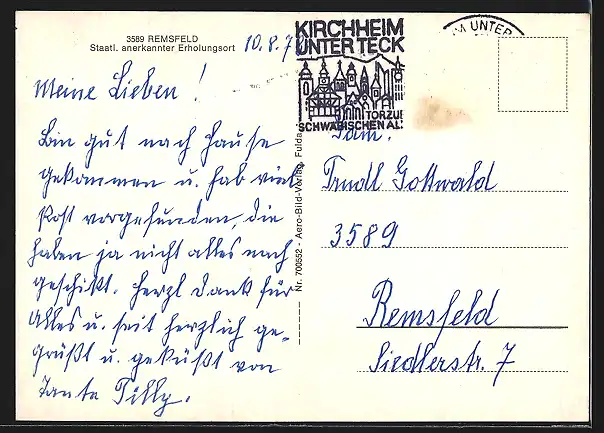 3589 REMSFELD
Staatl. anerkannter Erholungsort
10.8.7
Meine Lieben!
Bin gut nach Hause
gekommen u. hab viel
Post vorgefunden, die
haben ja nicht alles nach
geschikt. Herzl Dank für
Alles u. seit herzlich ge-
grüßt u. geküßt von
Tante Tilly.
Nr. 700552 - Aero-Bild-Verlag, Fulda
KIRCHHEIM
UNTER TECK
TORZUR
SCHWÄBISCHEN AL
M UNTER
Fam.
Trudl Gottwald
3589
Remsfeld
Siedlerstr. 7